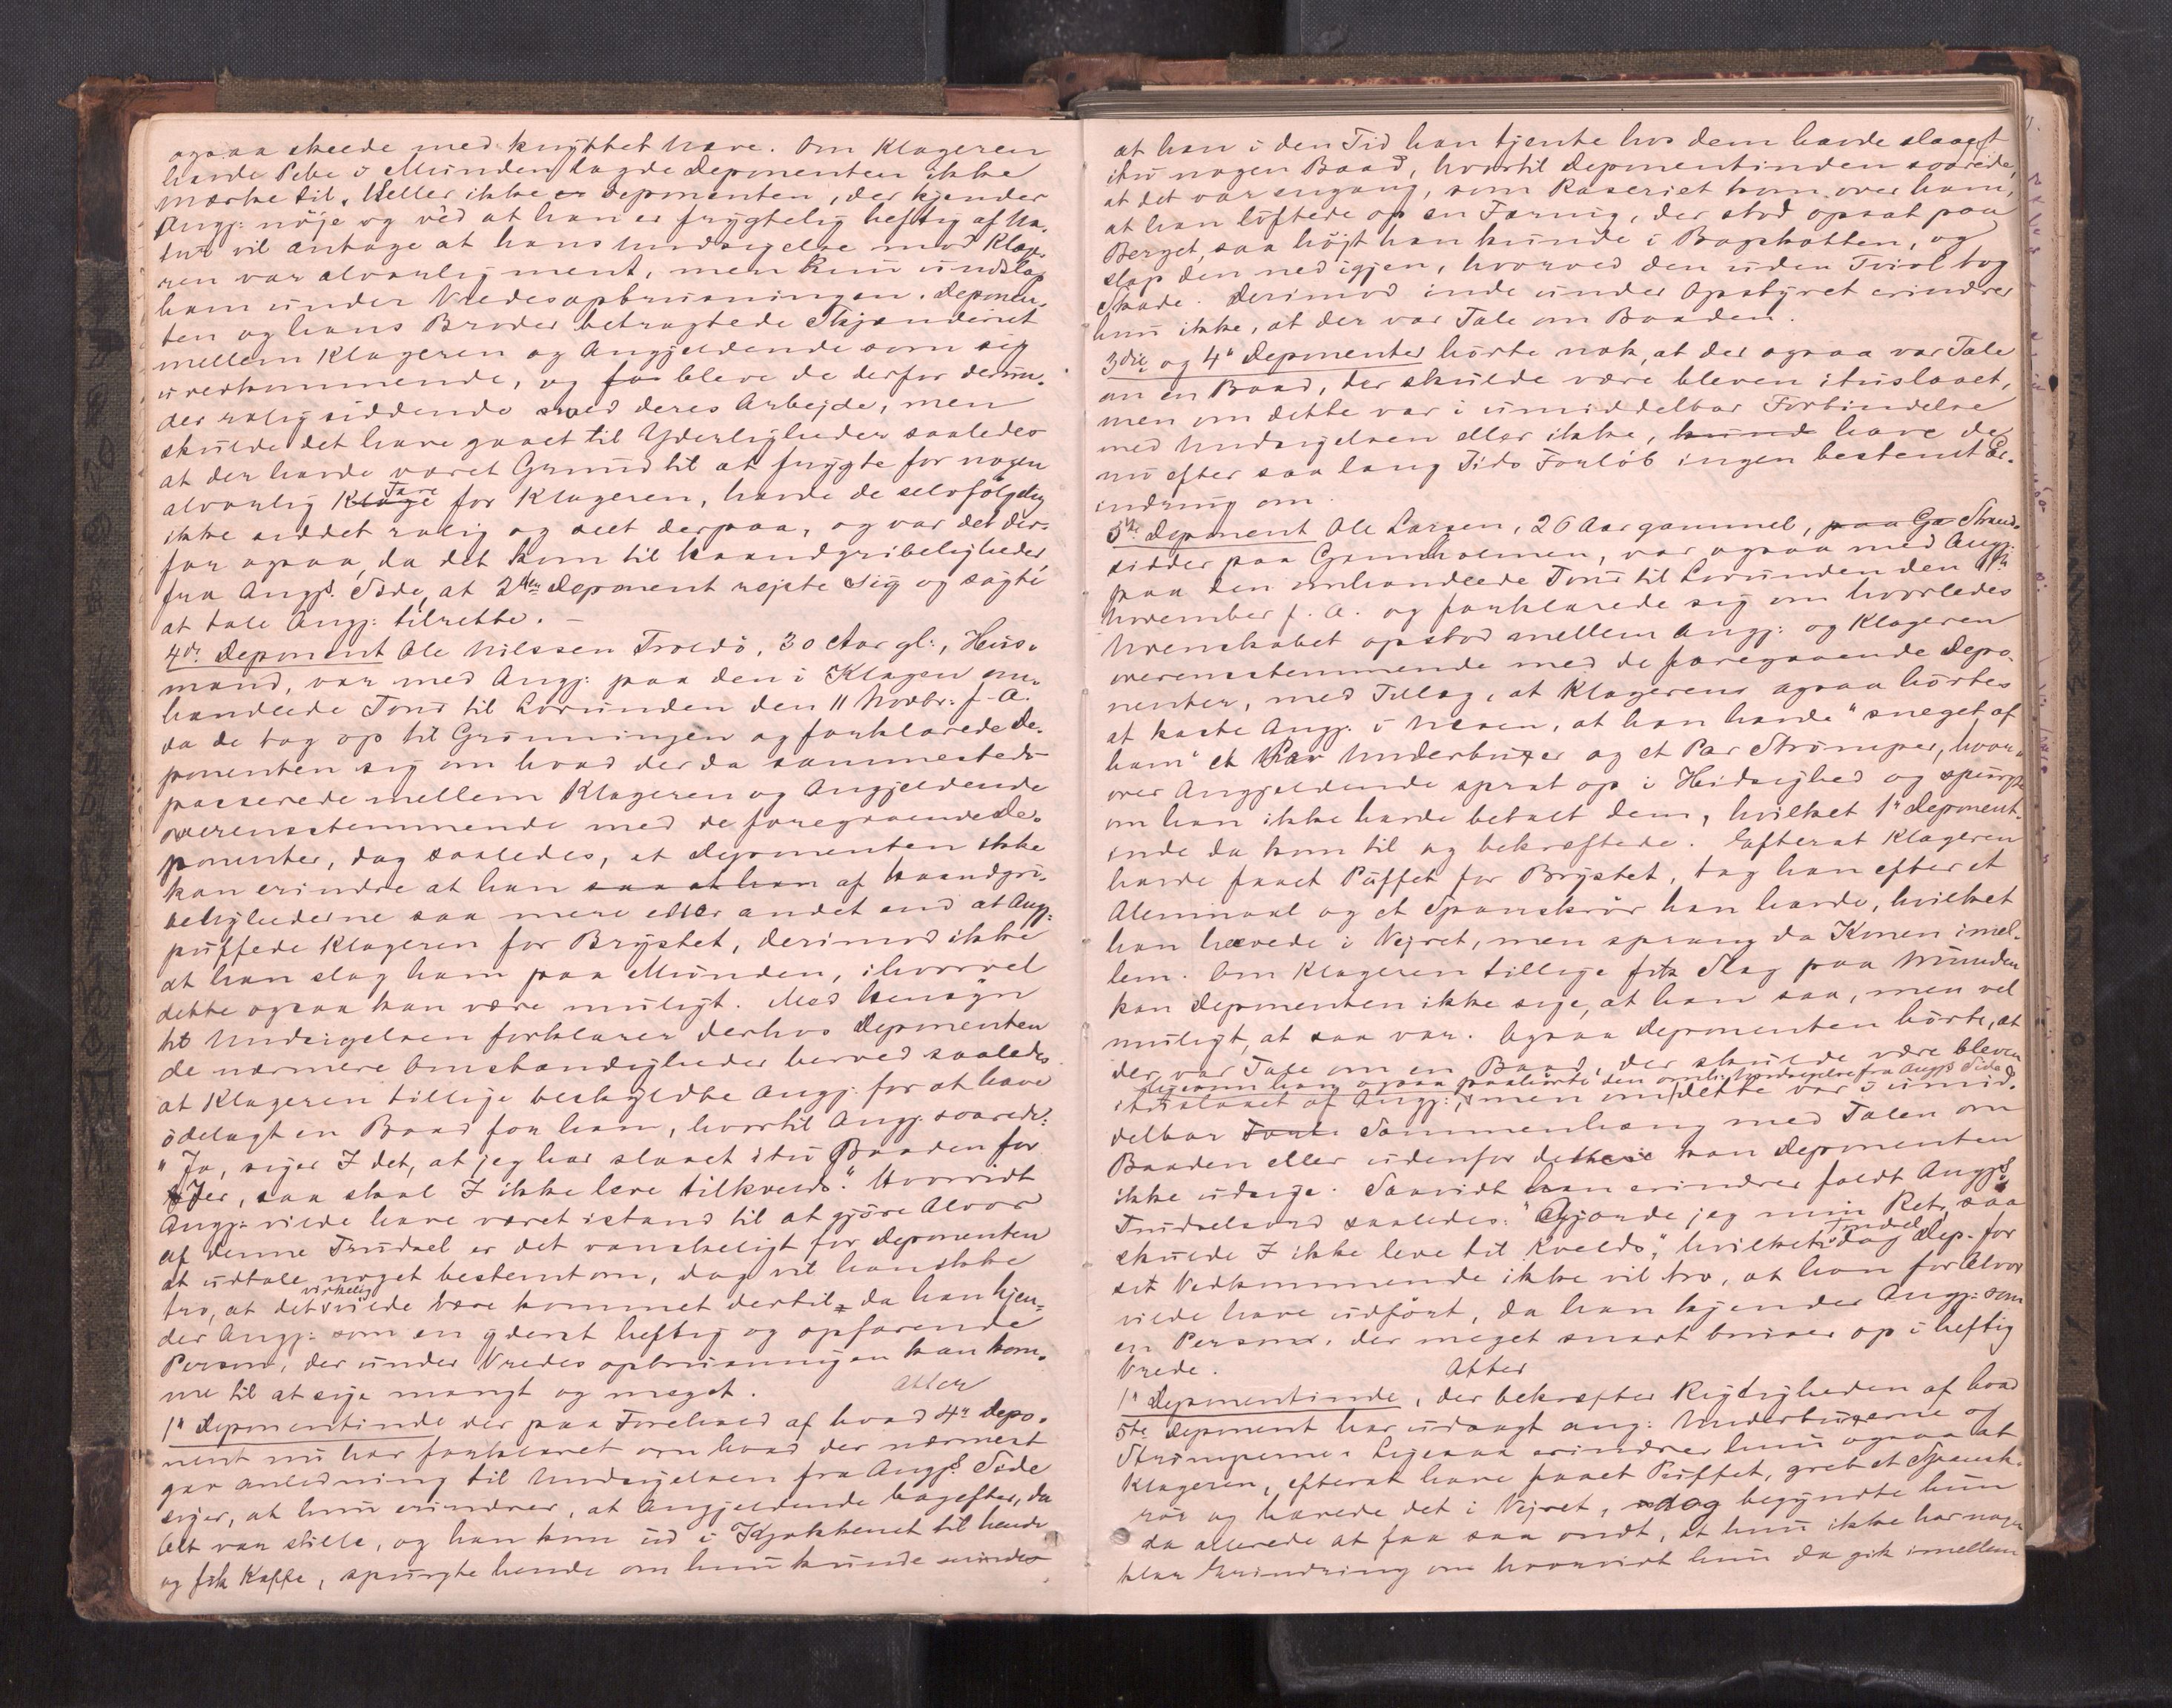 ogsaa skede med knyttet Næve. Om Klageren
havde Pibe i Munden lagde Deponenten ikke
Mærke til. Heller ikke er Deponenten, der kjender
Angj: nöje og véd at han er frygtelig heftig af Na-
tur vil antage at hans Undsigelse mod Klage-
ren var alvorlig ment, men kun undslap
ham under Vredesopbrusningen. Deponen-
ten og hans Broder betragtede Skjænderiet
mellem Klageren og Angjeldende som sig
uvedkommende, og for bleve de derfor derun-
der rolig siddende ved deres Arbejde, men
skulde det have gaaet til Yderligheder saaledes
at der havde været Grund til at frygte for nogen
alvorlig Klage Fare for Klageren, havde de selvfölgelig
ikke siddet rolig og seet derpaa, og var det der-
for ogsaa, da det kom til Haandgribeligheder
fra Angjs. Side, at 2den Deponent rejste sig og sögte
at tale Angj: tilrette. –
4de Deponent Ole Nilssen Troldö, 30 Aar gl:, Hus-
mand, var med Angj: paa den i Klagen om-
handlede Tour til Lovunden den 11 Novbr: f. A.
da de tog op til Grunningen og forklarede De-
ponenten sig om hvad der da sammesteds
passerede mellem Klageren og Angjeldende
overensstemmende med de foregaaende De-
ponenter, dog saaledes, at Deponenten ikke
kan erindre at han saa at han af Haandgri-
belighederne saa mere eller andet end at Angj:
puffede Klageren for Brystet, derimod ikke
at han slog ham paa Munden, ihvorvel
dette ogsaa kan være muligt. Med Hensyn
til Undsigelsen forklarer derhos Deponenten
de nærmere Omstændigheder herved saaledes
at Klageren tillige beskyldte Angj. for at have
ödelagt en Baad for ham, hvortil Angj. svarede:
"Ja, siger I det, at jeg har slaaet itu Baaden for
Jer, saa skal I ikke leve tilkvelds". Hvorvidt
Angj: vilde have været istand til at gjöre Alvor
af denne Trudsel er det vanskeligt for Deponenten
at udtale noget bestemt om, dog vil han ikke
tro, at det virkelig vilde være kommet dertil, da han kjen-
der Angj: som en yderst heftig og opfarende
Person, der under Vredes opbrusningen kan kom-
me til at sige mangt og meget. Atter
1ste Deponentinde der paa Forehold af hvad 4de Depo-
nent nu har forklaret om hvad der nærmest
gav Anledning til Undsigelsen fra Angjs. Side
siger, at hun erindrer, at Angjeldende bagefter, da
Alt var stille, og han kom ud i Kjökkenet til hende
og fik Kaffe, spurgte hende om hun kunde mindes
at han i den Tid han tjente hos dem havde slaaet
itu nogen Baad, hvortil Deponentinden svarede,
at det var engang, som Raseriet kom over ham,
at han löftede op en Færing, der stod opsat paa
Berget, saa höjt han kunde i Bagskotten, og
slap den ned igjen, hvorved den uden Tvivl tog
Skade. Derimod inde under Opstyret erindrer
hun ikke, at der var Tale om Baaden.
3die og 4de Deponenter hörte nok, at der ogsaa var Tale
om en Baad, der skulde være bleven ituslaaet,
men om dette var i umiddelbar Forbindelse
med Undsigelsen eller ikke, kunde have de
nu efter saa lang Tids Forlöb ingen bestemt Er-
indring om.
5te Deponent Ole Larsen, 26 Aar gammel, paa Gr Strand-
sidder paa Grönholmen, var ogsaa med Angj:
paa den omhandlede Tour til Lovunden den 11te
November f. A. og forklarede sig om hvorledes
Uvenskabet opstod mellem Angj: og Klageren
overensstemmende med de foregaaende Depo-
nenter, med Tillæg, at Klageren ogsaa hörtes
at kaste Angj. i Næsen, at han havde "sneget af
ham" et Par Underbuxer og et Par Strömper, hvor-
over Angjeldende sprat op i Hidsighed og spurgte
om han ikke havde betalt dem, hvilket 1ste Deponent-
inde da kom til og bekræftede. Efterat Klageren
havde faaet Puffet for Brystet, tog han efter et
Alenmaal og et Spanskrör han havde, hvilket
han hævede i Vejret, men sprang da Konen imel-
lem. Om Klageren tillige fik Slag paa Munden
kan Deponenten ikke sige, at han saa, men vel
muligt, at saa var. Ogsaa Deponenten hörte, at
der var Tale om en Baad, der skulde være bleven
ligesom han ogsaa paahörte den omh: Undsigelse fra Angjs Side
ituslaaet af Angj:, men om dette var i umid-
delbar Forb Sammenhæng med Talen om
Baaden eller udenfor dette kan Deponenten
ikke udsige. Saavidt han erindrer faldt Angjs.
Trudselsord saaledes: "Gjorde jeg min Ret, saa
skulde I ikke leve til Kvelds," hvilken Trudsel dog Dep. for
sit Vedkommende ikke vil tro, at han for Alvor
vilde have udfört, da han kjender Angj: som
en Person, der meget snart bruser op i heftig
Vrede. Atter
1ste Deponentinde, der bekræfter Rigtigheden af hvad
5te Deponent har udsagt ang: Underbuxerne og
Strömperne. Ligesaa erindrer hun ogsaa at
Klageren, efterat have faaet Puffet, greb et Spansk-
rör og hævede det i Vejret, dog begyndte hun
da allerede at faa saa ondt, at hun ikke har nogen
klar Erindring om hvorvidt hun da gik imellem